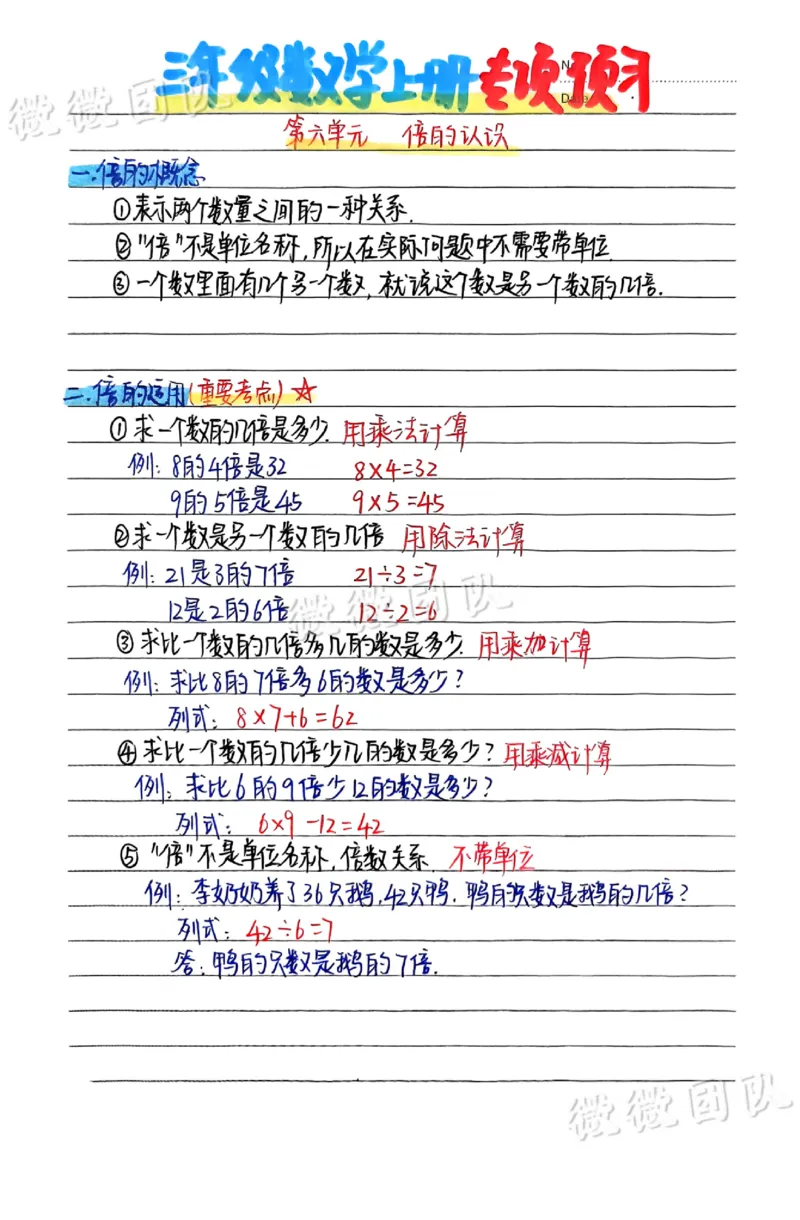 微微团队
三年级数学上册专项预习
No
Date
第六单元 倍的认识
一.倍的概念
①表示两个数量之间的一种关系.
②"倍"不是单位名称,所以在实际问题中不需要带单位
③一个数里面有几个另一个数,就说这个数是另一个数的几倍.
二.倍的运用(重要考点)☆
①求一个数的几倍是多少.用乘法计算
例:8的4倍是32 8×4=32
9的5倍是45 9×5=45
②求一个数是另一个数的几倍 用除法计算
例:21是3的7倍 21÷3=7
12是2的6倍 12÷2=6
微微团队
③求比一个数的几倍多几的数是多少.用乘加计算
例:求比8的7倍多6的数是多少?
列式:8×7+6=62
④求比一个数的几倍少几的数是多少?用乘减计算
例:求比6的9倍少12的数是多少?
列式:6×9-12=42
⑤"倍"不是单位名称,倍数关系.不带单位
例:李奶奶养了36只鹅,42只鸭.鸭的只数是鹅的几倍?
列式:42÷6=7
答:鸭的只数是鹅的7倍.
微微团队